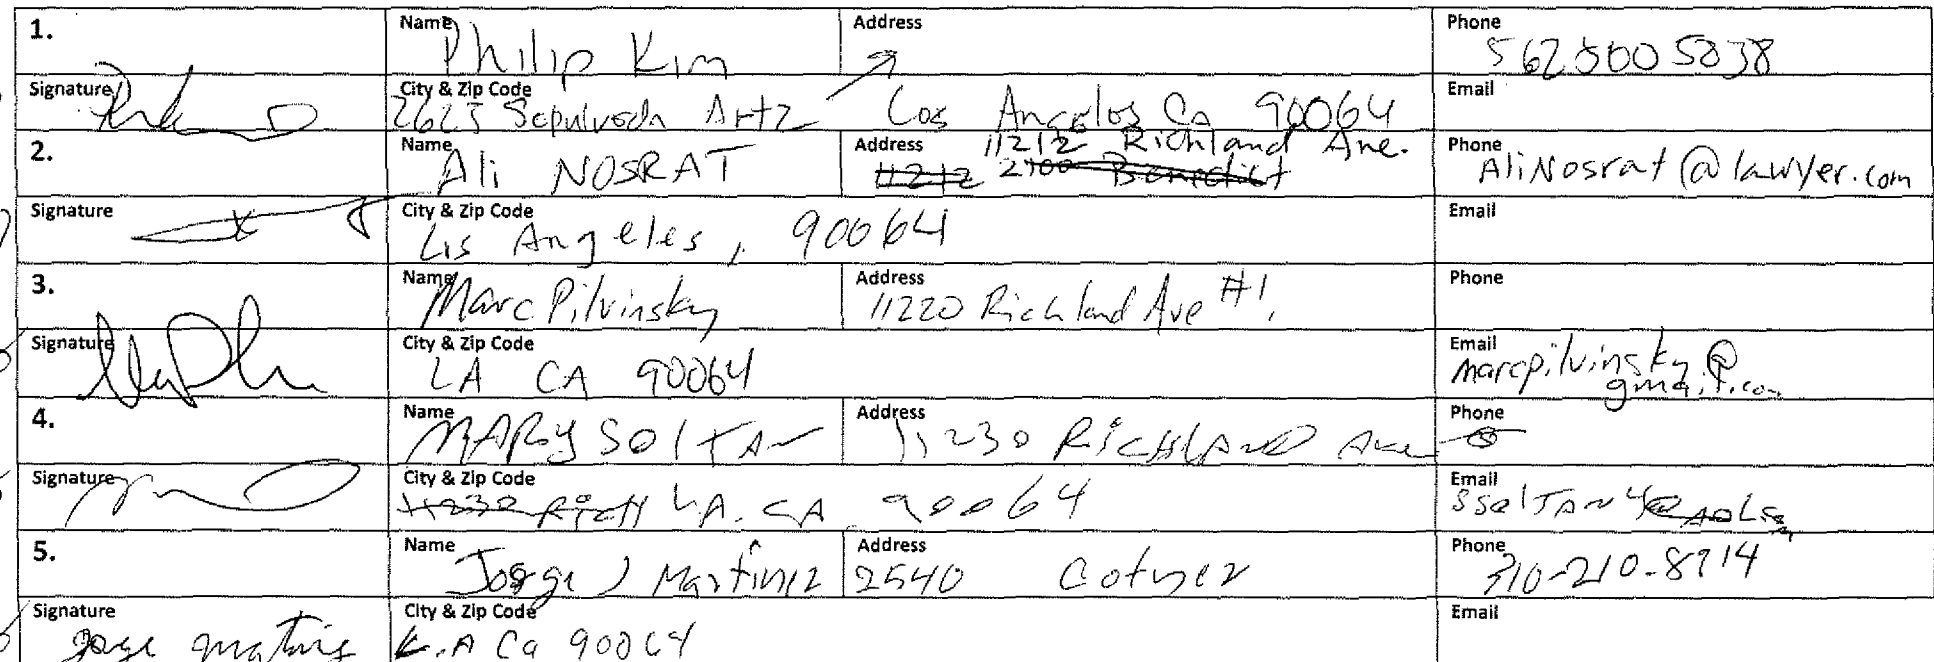 1. Name Philip Kim Address Phone 562 500 5838
Signature City & Zip Code 2625 Sepulveda Apt 2 Los Angeles Ca 90064 Email
2. Name Ali NOSRAT Address 11212 2100 Benedict 11212 Richland Ave. Phone AliNosrat@lawyer.com
Signature City & Zip Code Lis Angeles, 90064 Email
3. Name Marc Pilvinsky Address 11220 Richland Ave #1, Phone
Signature City & Zip Code LA CA 90064 Email marcpilvinsky@
gmail.com
4. Name MARY SOLTAN Address 11230 RICHLAND Ave Phone
Signature City & Zip Code 11230 Rich LA. CA 90064 Email
5. Name Jorge J Martinez Address 2540 Phone 310-210-8914
Signature City & Zip Code L.A Ca 90064 Email